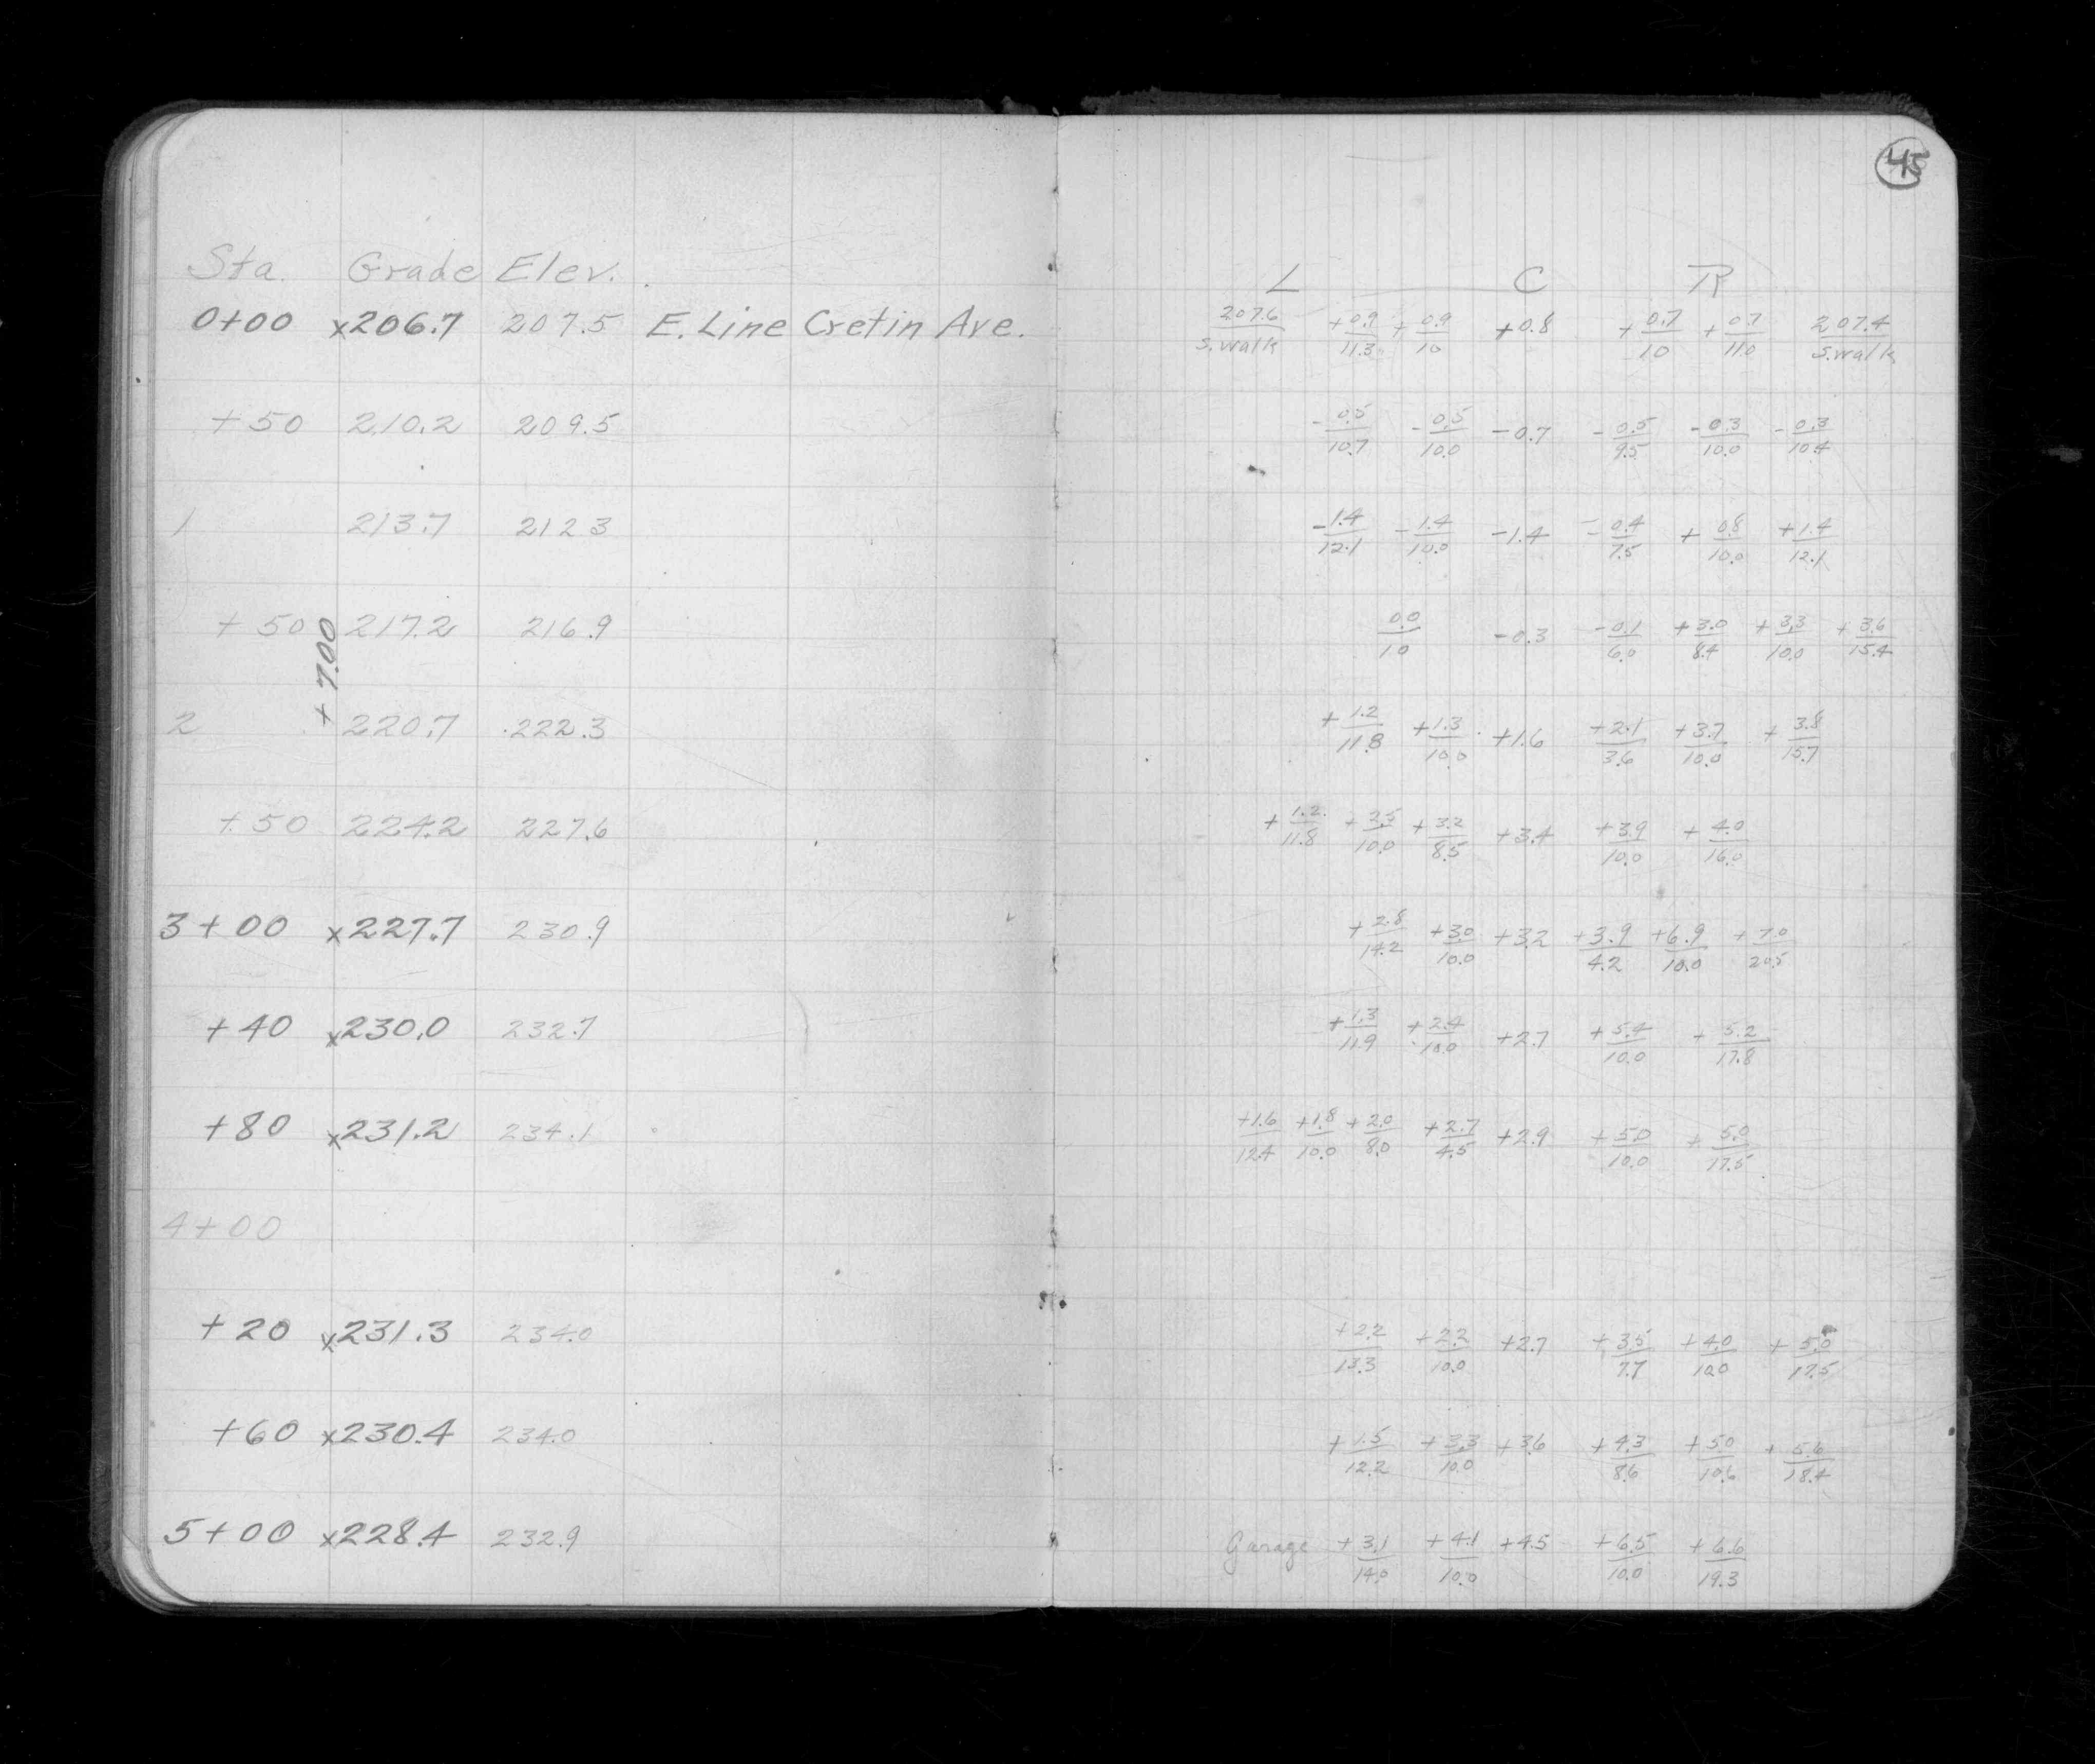 45
Sta. Grade Elev. L C R
0+00 x206.7 207.5 E. Line Cretin Ave. 207.6/S.walk +0.9/11.3 +0.9/10 +0.8 +0.7/10 +0.7/11.0 207.4/S.walk
+50 210.2 209.5 -0.5/10.7 -0.5/10.0 -0.7 -0.5/9.5 -0.3/10.0 -0.3/10.4
1 213.7 212.3 -1.4/12.1 -1.4/10.0 -1.4 -0.4/7.5 +0.8/10.0 +1.4/12.1
+50 217.2 216.9 0.0/10 -0.3 -0.1/6.0 +3.0/8.4 +3.3/10.0 +3.6/15.4
+7.00
2 220.7 222.3 +1.2/11.8 +1.3/10.0 +1.6 +2.1/3.6 +3.7/10.0 +3.8/15.7
+50 224.2 227.6 +1.2/11.8 +2.5/10.0 +3.2/8.5 +3.4 +3.9/10.0 +4.0/16.0
3+00 x227.7 230.9 +2.8/14.2 +3.0/10.0 +3.2 +3.9/4.2 +6.9/10.0 +7.0/20.5
+40 x230.0 232.7 +1.3/11.9 +2.4/10.0 +2.7 +5.4/10.0 +5.2/17.8
+80 x231.2 234.1 +1.6/12.4 +1.8/10.0 +2.0/8.0 +2.7/4.5 +2.9 +5.0/10.0 +5.0/17.5
4+00
+20 x231.3 234.0 +2.2/13.3 +2.2/10.0 +2.7 +3.5/7.7 +4.0/10.0 +5.0/17.5
+60 x230.4 234.0 +1.5/12.2 +3.3/10.0 +3.6 +4.3/8.6 +5.0/10.6 +5.6/18.4
5+00 x228.4 232.9 Garage +3.1/14.0 +4.1/10.0 +4.5 +6.5/10.0 +6.6/19.3